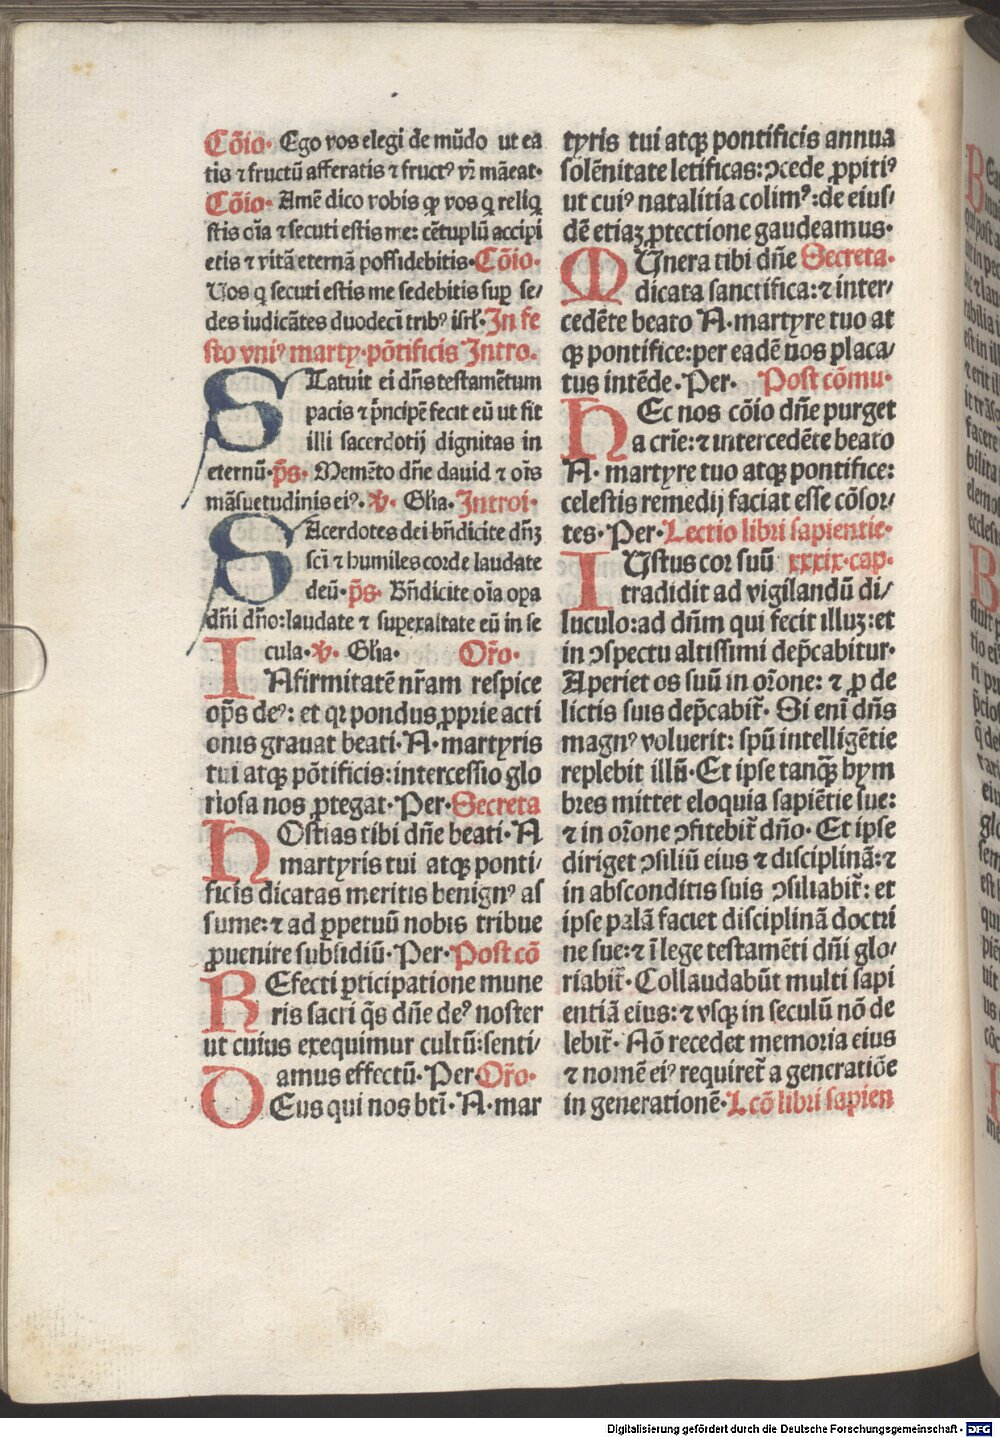 Cõio· Ego vos elegi de mũdo ut ea
tis ⁊ fructũ afferatis ⁊ fructꝰ vr̃ mãeat·
Cõio· Amẽ dico vobis ꝙ vos q reliq̃
stis oĩa ⁊ secuti estis me: cẽtuplũ accipi
etis ⁊ vitã eternã possidebitis·Cõio·
Uos q secuti estis me sedebitis suꝑ se/
des iudicãtes duodecĩ tribꝰ isrł·In fe
sto vniꝰ marty·põtificis Intro.
STatuit ei dñs testamẽtum
pacis ⁊ p̃ncipẽ fecit eũ ut sit
illi sacerdotij dignitas in
eternũ·p̃s· Memẽto dñe dauid ⁊ oĩs
mãsuetudinis eiꝰ·℣· Gľia·Introi·
SAcerdotes dei bñdicite dñꝫ
scĩ ⁊ humiles corde laudate
deũ·p̃s· Bñdicite oĩa oꝑa
dñi dño:laudate ⁊ suꝑexaltate eũ in se
cula·℣· Gľia· Or̃o·
INfirmitatẽ nr̃am respice
op̃s deꝰ: et qꝛ pondus ꝓprie acti
onis grauat beati·N·martyris
tui atqꝫ põtificis:intercessio glo
riosa nos ꝓtegat·Per·Secreta
HOstias tibi dñe beati·N
martyris tui atqꝫ ponti/
ficis dicatas meritis benignꝰ as
sume:⁊ ad ꝑpetuũ nobis tribue
ꝓuenire subsidiũ·Per·Post cõ
REfecti ꝑticipatione mune
ris sacri q̃s dñe deꝰ noster
ut cuius exequimur cultũ:senti/
amus effectũ·Per·Or̃o·
DEus qui nos btĩ·N·mar
tyris tui atqꝫ pontificis annua
solẽnitate letificas:ↄcede ꝓpitiꝰ
ut cuiꝰ natalitia colimꝰ:de eius/
dẽ etiaꝫ ꝓtectione gaudeamus·
MUnera tibi dñe Secreta·
dicata sanctifica:⁊ inter/
cedẽte beato N·martyre tuo at
qꝫ pontifice:per eadẽ nos placa/
tus intẽde·Per· Post cõmu·
HEc nos cõio dñe purget
a crĩe:⁊ intercedẽte beato
N· martyre tuo atqꝫ pontifice:
celestis remedij faciat esse cõsoꝛ/
tes·Per·Lectio libri sapientie·
IUstus cor suũ xxxix·cap·
tradidit ad vigilandũ di/
luculo:ad dñm qui fecit illuꝫ:et
in ↄspectu altissimi dep̃cabitur·
Aperiet os suũ in or̃one: ⁊ ꝓ de
lictis suis dep̃cabit̃· Si enĩ dñs
magnꝰ voluerit: spũ intelligẽtie
replebit illũ·Et ipse tanqꝫ̃ hym
bres mittet eloquia sapiẽtie sue:
⁊ in or̃one ↄfitebit̃ dño· Et ipse
diriget ↄsiliũ eius ⁊ disciplinã:⁊
in absconditis suis ↄsiliabit̃: et
ipse palã faciet disciplinã doctri
ne sue:⁊ ĩ lege testamẽti dñi glo/
riabit̃·Collaudabũt multi sapi
entiã eius:⁊ vsqꝫ in seculũ nõ de
lebit̃· Nõ recedet memoria eius
⁊ nomẽ eiꝰ requiret̃ a generatiõe
in generationẽ·Lcõ libri sapien
Digitalisierung gefördert durch die Deutsche Forschungsgemeinschaft - DFG